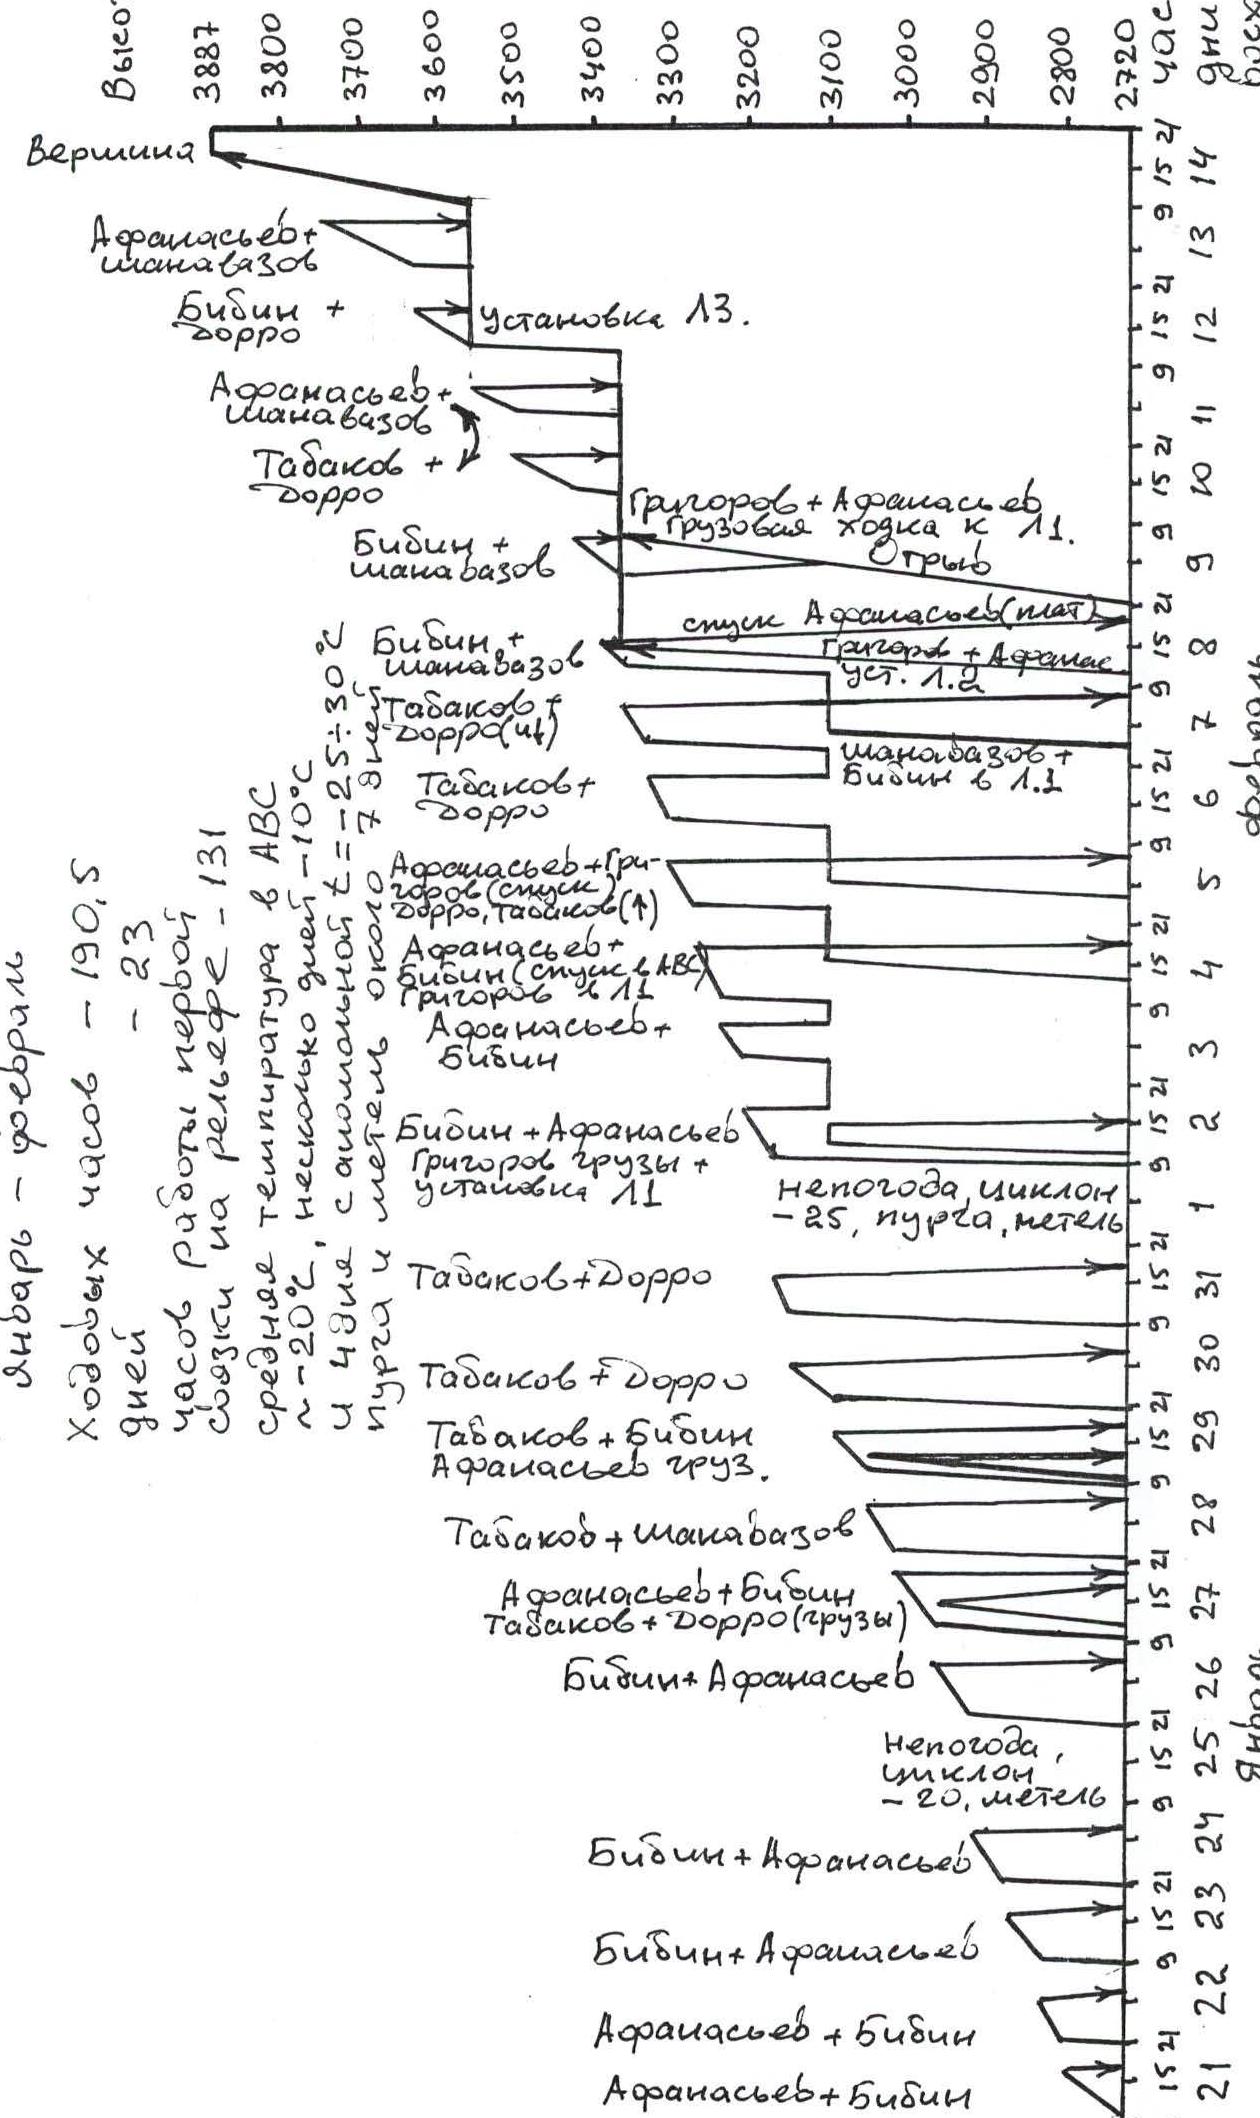 Январь – февраль
Ходовых часов – 190,5
дней – 23
часов работы первой
связки на рельефе – 131
средняя темпиратура в АВС
~ -20°С, несколько дней -10°С
и 4 дня с аномальной t = -25÷30°С
пурга и метель около 7 дней
3887
3800
3700
3600
3500
3400
3300
3200
3100
3000
2900
2800
2720
час
дни
Вершина
Афанасьев+
Шанавазов
Бибин +
Дорро
Установка Л3.
Афанасьев+
Шанавазов
Табаков +
Дорро
Григоров + Афанасьев
Грузовая ходка к Л1.
Отрыв
Бибин +
Шанавазов
спуск Афанасьев(плат)
Бибин +
Шанавазов
Григоров + Афанас
уст. Л.2
Табаков +
Дорро(и↓)
Шанавазов +
Бибин в Л.1
Табаков+
Дорро
Афанасьев+Гри-
горов(спуск)
Дорро, Табаков(↑)
Афанасьев+
Бибин (спуск в АВС)
Григоров в Л1
Афанасьев+
Бибин
Бибин + Афанасьев
Григоров грузы +
установка Л1
Непогода, циклон
-25, пурга, метель
Табаков+Дорро
Табаков + Дорро
Табаков + Бибин
Афанасьев груз.
Табаков + Шанавазов
Афанасьев+Бибин
Табаков + Дорро(грузы)
Бибин+Афанасьев
Непогода,
циклон
-20, метель
Бибин+Афанасьев
Бибин+Афанасьев
Афанасьев + Бибин
Афанасьев+Бибин
15 21 9 15 21 9 15 21 9 15 21 9 15 21 9 15 21 9 15 21 9 15 21 9 15 21 9 15 21 9 15 21 9 15 21
21 22 23 24 25 26 27 28 29 30 31 1 2 3 4 5 6 7 8 9 10 11 12 13 14